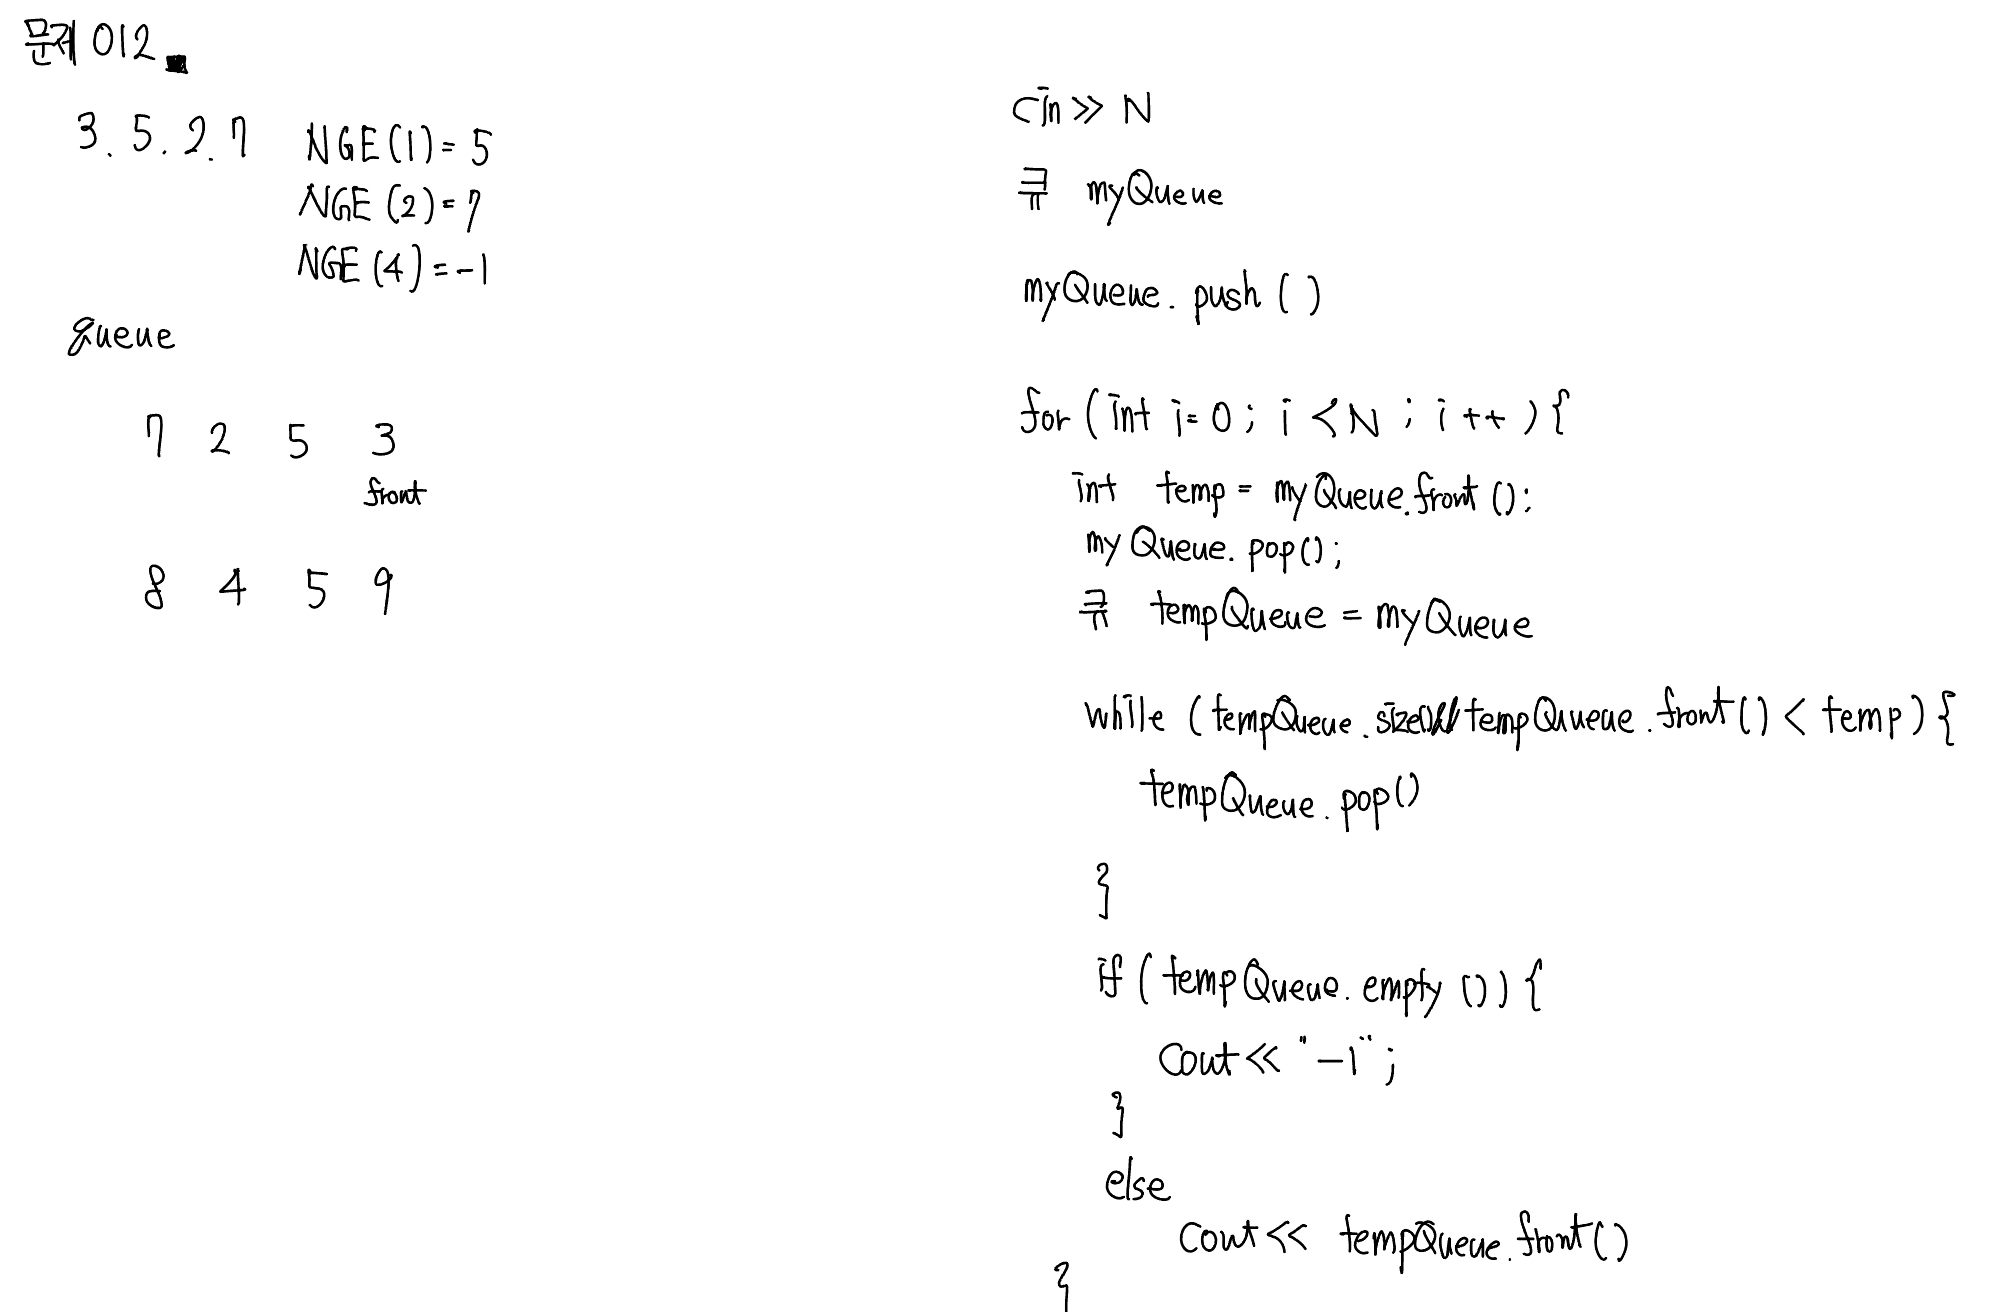 문제 012
3. 5. 2. 7 NGE(1)= 5
NGE (2)=7
NGE (4)=-1
queue
7 2 5 3
front
8 4 5 9
cin >> N
큐 myQueue
myQueue. push ( )
for ( int i= 0 ; i < N ; i ++ ) {
int temp = myQueue.front ();
myQueue. pop();
큐 tempQueue = myQueue
while (tempQueue.size()&&tempQueue.front() < temp) {
tempQueue.pop()
}
if ( tempQueue. empty ()) {
cout << "-1" ;
}
else
cout << tempQueue.front()
}